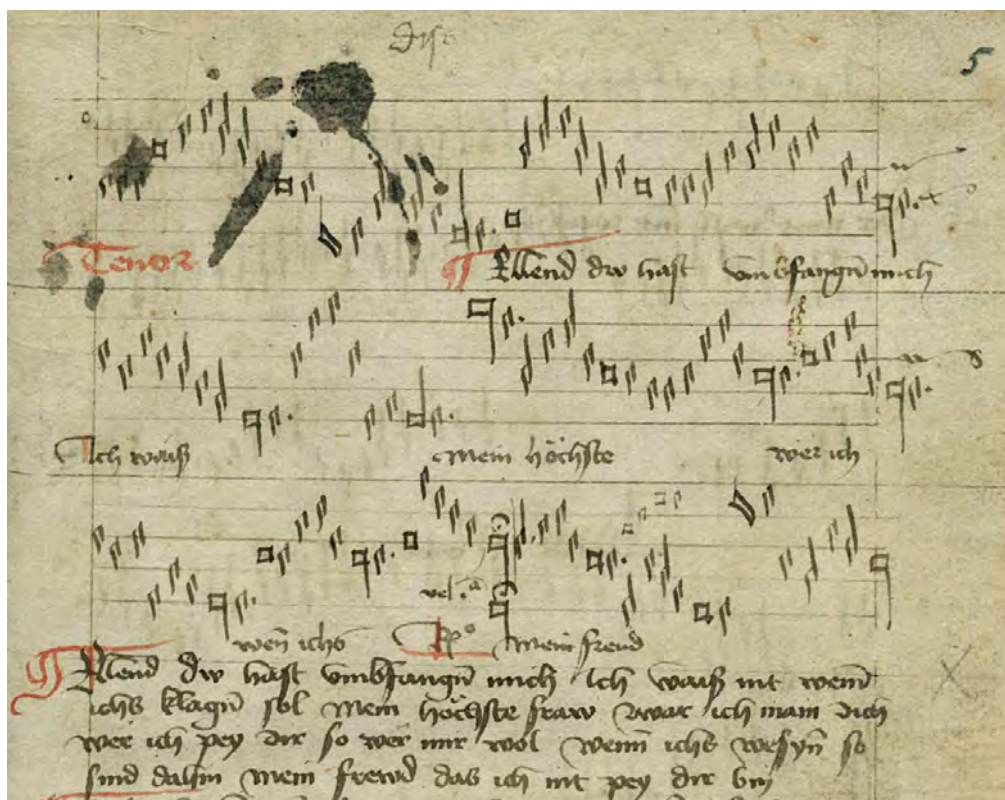 5
Tenor
Ellend dw hast vmbfangn̄ mich
Ich waiß
Mein höchste
wer ich
wen̄ ichs
Mein freud
Ellend dw hast vmbfangn̄ mich Ich waiß nit wem̄
ichs klagn̄ sol Mein höchste fraw zwar ich main dich
wer ich pey dir so wer mir wol wenn ichs so
sind dahin Mein frewd das ich nit pey dir bin